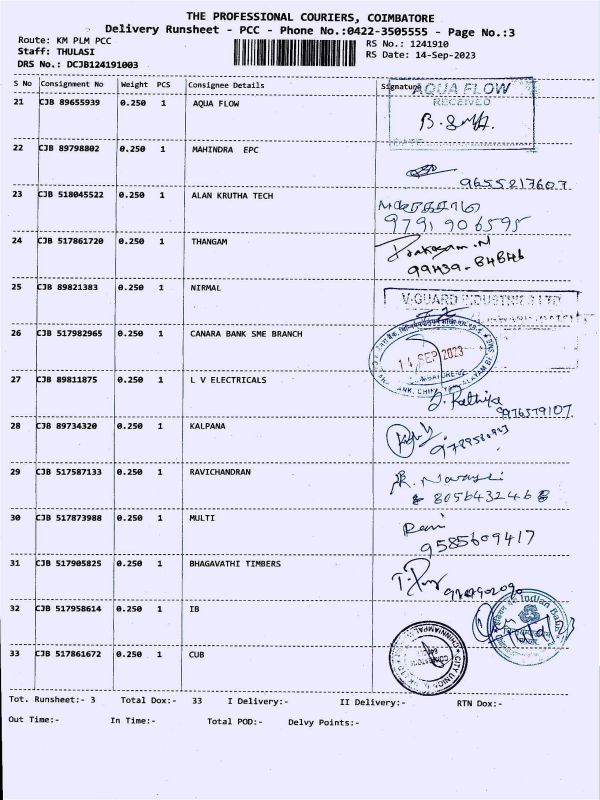 THE PROFESSIONAL COURIERS, COIMBATORE
Delivery Runsheet - PCC - Phone No.:0422-3505555 - Page No.:3
Route: KM PLM PCC
RS No.: 1241910
Staff: THULASI
RS Date: 14-Sep-2023
DRS No.: DCJB124191003
S No Consignment No Weight PCS Consignee Details Signature
21 CJB 89655939 0.250 1 AQUA FLOW
AQUA FLOW
RECEIVED
22 CJB 89798802 0.250 1 MAHINDRA EPC
9655217607
23 CJB 518045522 0.250 1 ALAN KRUTHA TECH
9791906595
24 CJB 517861720 0.250 1 THANGAM
99439-84846
25 CJB 89821383 0.250 1 NIRMAL
V-GUARD INDUSTRIES LTD
26 CJB 517982965 0.250 1 CANARA BANK SME BRANCH
14 SEP 2023
27 CJB 89811875 0.250 1 L V ELECTRICALS
9976579107
28 CJB 89734320 0.250 1 KALPANA
29 CJB 517587133 0.250 1 RAVICHANDRAN
30 CJB 517873988 0.250 1 MULTI
Rani
9585609417
31 CJB 517905825 0.250 1 BHAGAVATHI TIMBERS
32 CJB 517958614 0.250 1 IB
Indian Bank
33 CJB 517861672 0.250 1 CUB
CITY UNION
Tot. Runsheet:- 3 Total Dox:- 33 I Delivery:- II Delivery:- RTN Dox:-
Out Time:- In Time:- Total POD:- Delvy Points:-